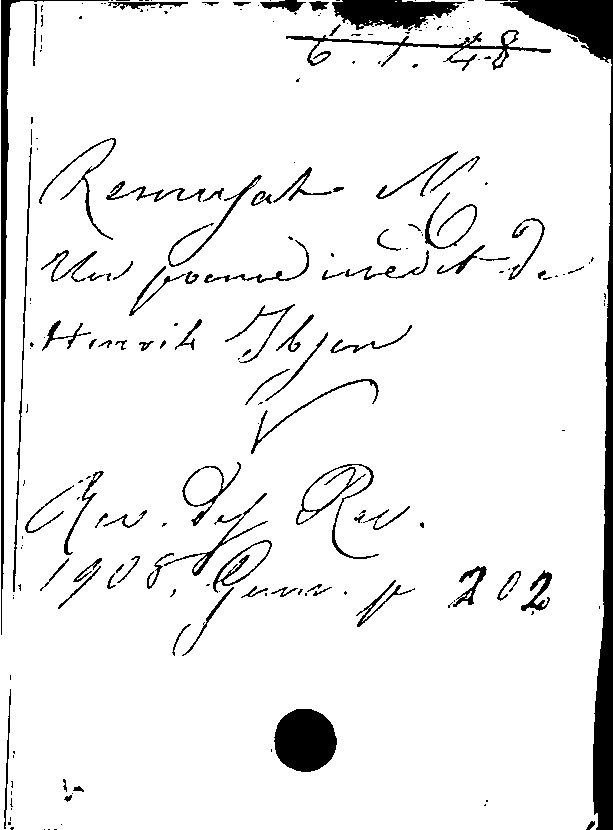 6.1.48
Remusat M.
Un poeme inédit de
Henrik Ibsen
V
Rev. des Rev.
1908, Genn. p 202